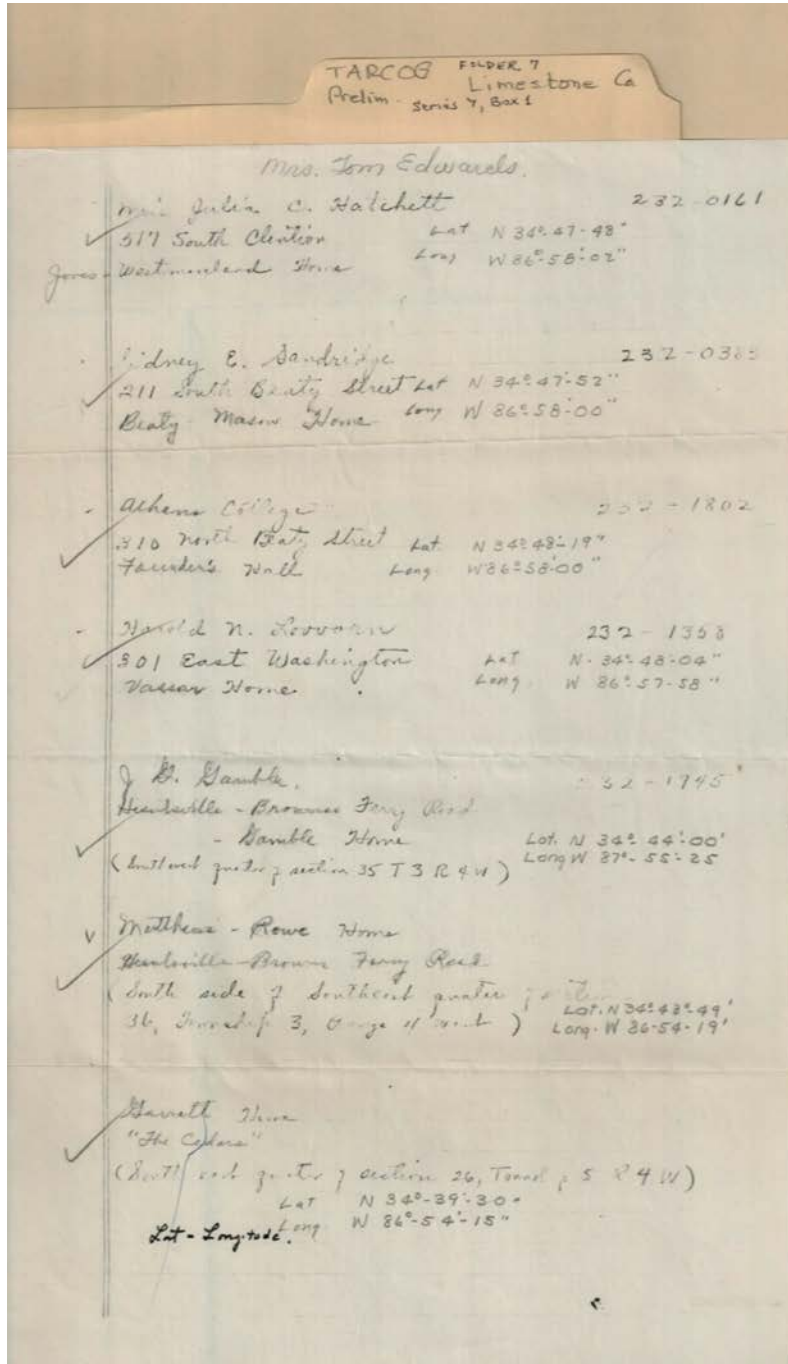 TARCOG FOLDER 7
Limestone Co
Prelim - Series 7, Box 1
Mrs. Tom Edwards.
Julia C. Hatchett 232-0161
517 South Clention Lat N 34°-47-48"
Jones - Westmoreland Home Long W 86°-58-02"
Sidney E. Sandridge 232-0383
211 South Beaty Street Lat N 34°-47'-52"
Beaty - Mason Home Long W 86°-58'-00"
Athens College 232-1802
310 North Beaty Street Lat. N 34°48'-19"
Founder's Hall Long W 86°-58'-00"
Harold N. Lovvorn 232-1358
301 East Washington Lat N. 34°-48'-04"
Vassar Home. Long W 86°-57-58"
J D. Gamble. 232-1745
Huntsville - Browns Ferry Road
- Gamble Home Lat. N 34° 44'-00'
(Southeast quater of section 35 T 3 R 4 W) Long W 87°-55'-25
Matthews - Rowe Home
Huntsville-Browns Ferry Road
(South side of Southeast quater of section
36, Township 3, Range 4 west) Lat. N 34°43°-49'
Long. W 86-54-19'
Garrett Home
"The Cedars"
(South quater of section 26, 5 R 4 W)
Lat N 34°-39'-30"
Long W 86°-54'-15"
Lat - Longitude.